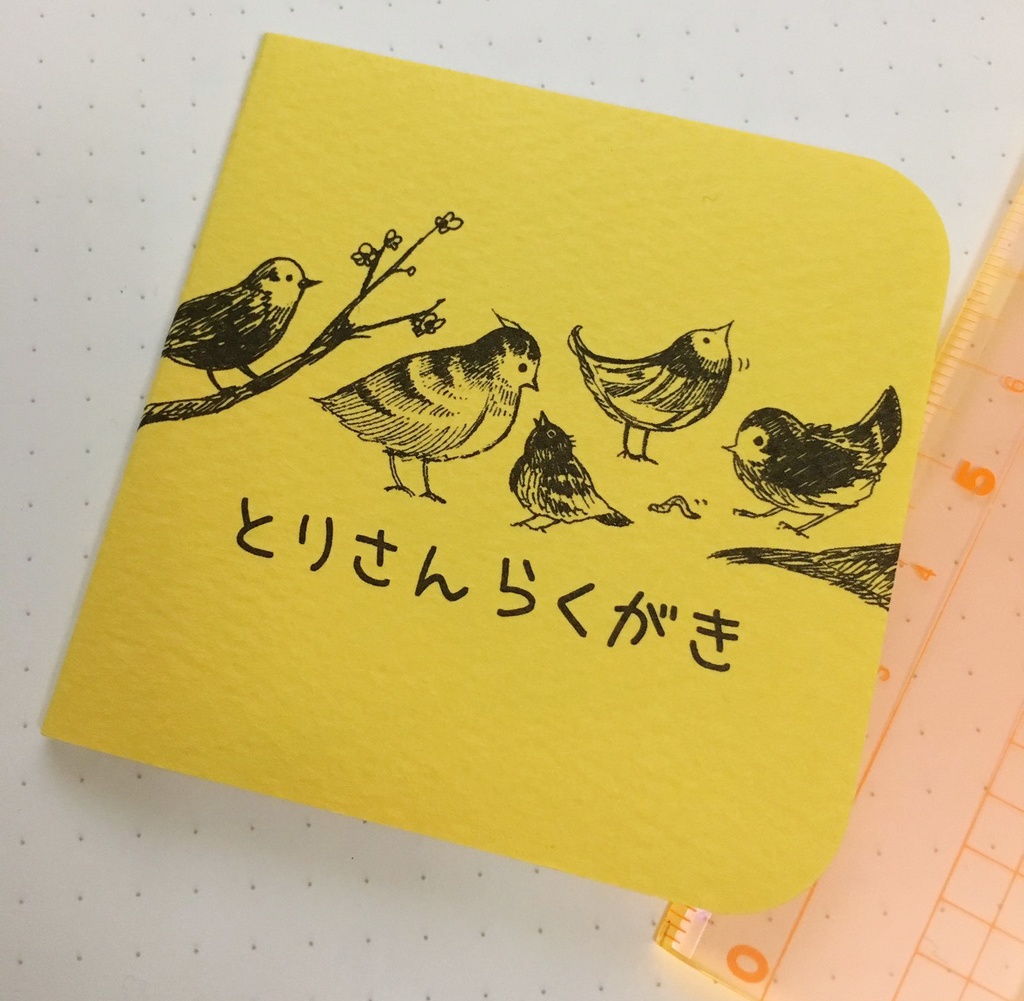 とりさん らくがき
6
5
4
3
0